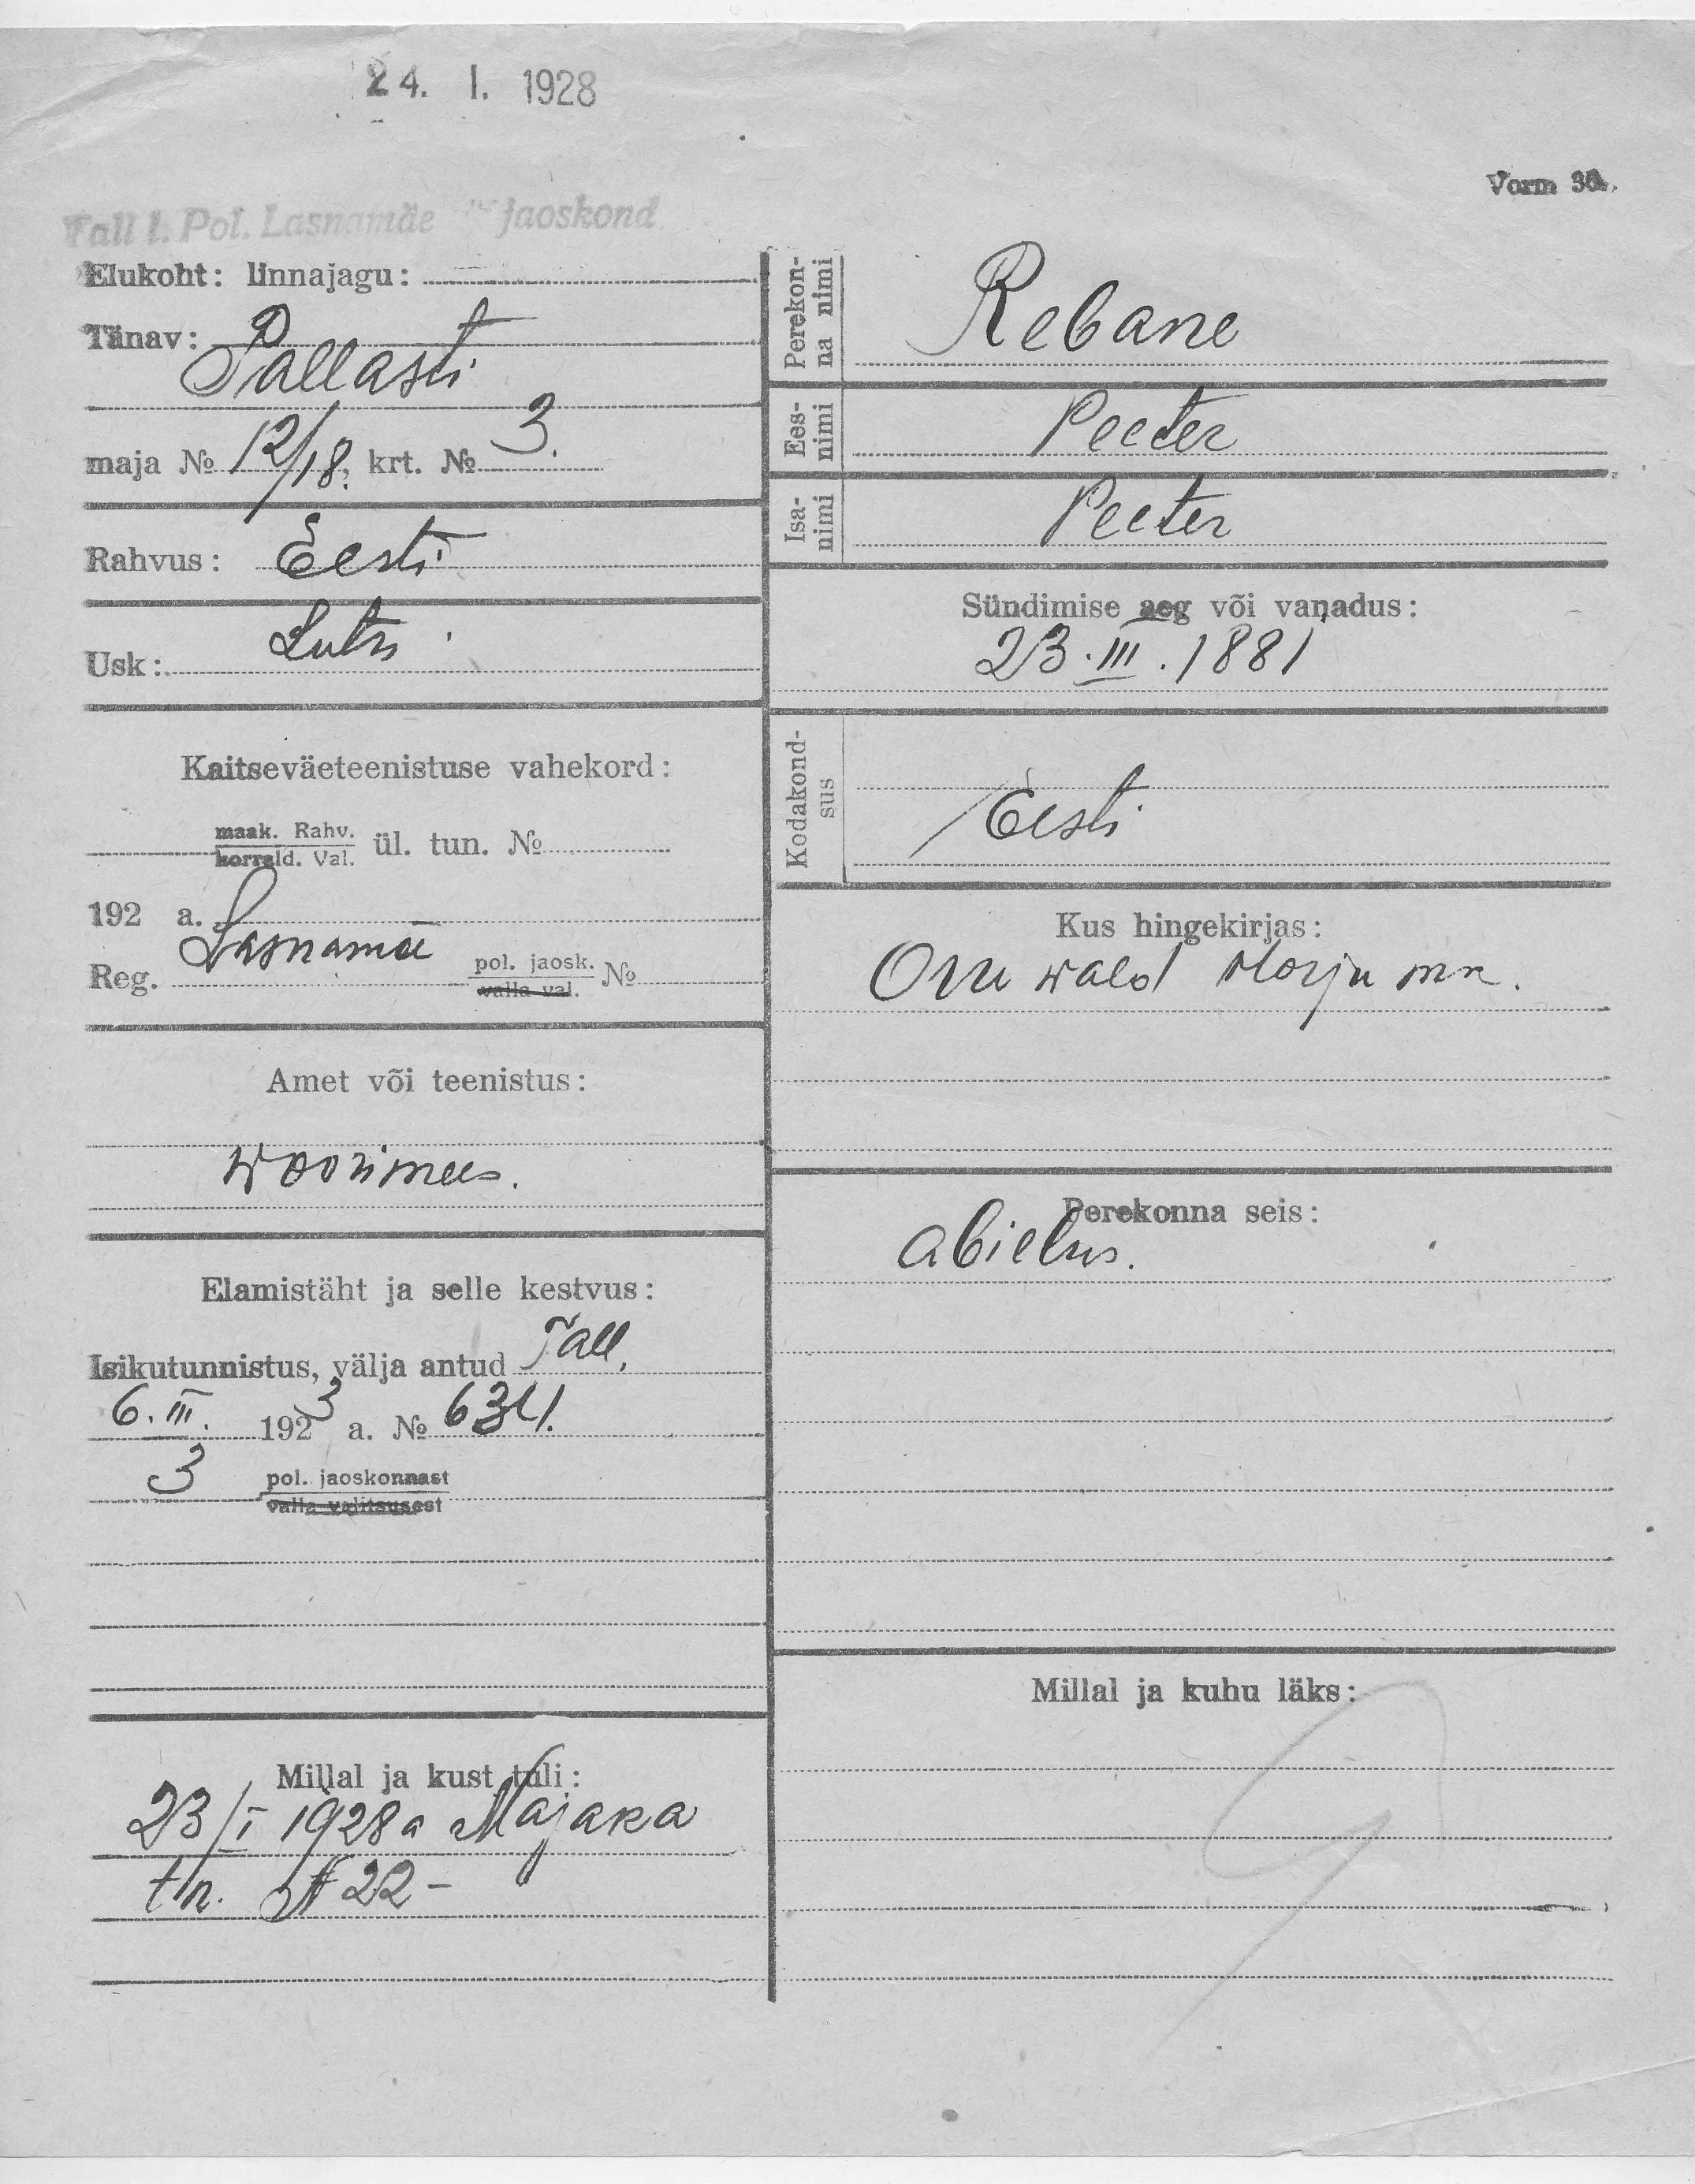 24. I. 1928
Vorm 30.
Tall l. Pol. Lasnamäe jaoskond
Elukoht: linnajagu:
Tänav: Pallasti
maja № 12/18, krt. № 3.
Rahvus: Eesti
Usk: Lutri
Kaitseväeteenistuse vahekord:
maak. Rahv.
korrald. Val. ül. tun. №
192 a.
Reg. Lasnamäe pol. jaosk. №
valla val.
Amet või teenistus:
Woorimees.
Elamistäht ja selle kestvus:
Isikutunnistus, välja antud Tall.
6. III. 1923 a. №
3 pol. jaoskonnast
valla valitsusest
Millal ja kust tuli:
23/I 1928 a Majaka
tn. № 22 –
Perekon-
na nimi
Rebane
Ees-
nimi
Peeter
Isa-
nimi
Peeter
Sündimise aeg või vanadus:
23. III. 1881
Kodakond-
sus
Eesti
Kus hingekirjas:
wald Harju mk.
Perekonna seis:
abielus.
Millal ja kuhu läks: